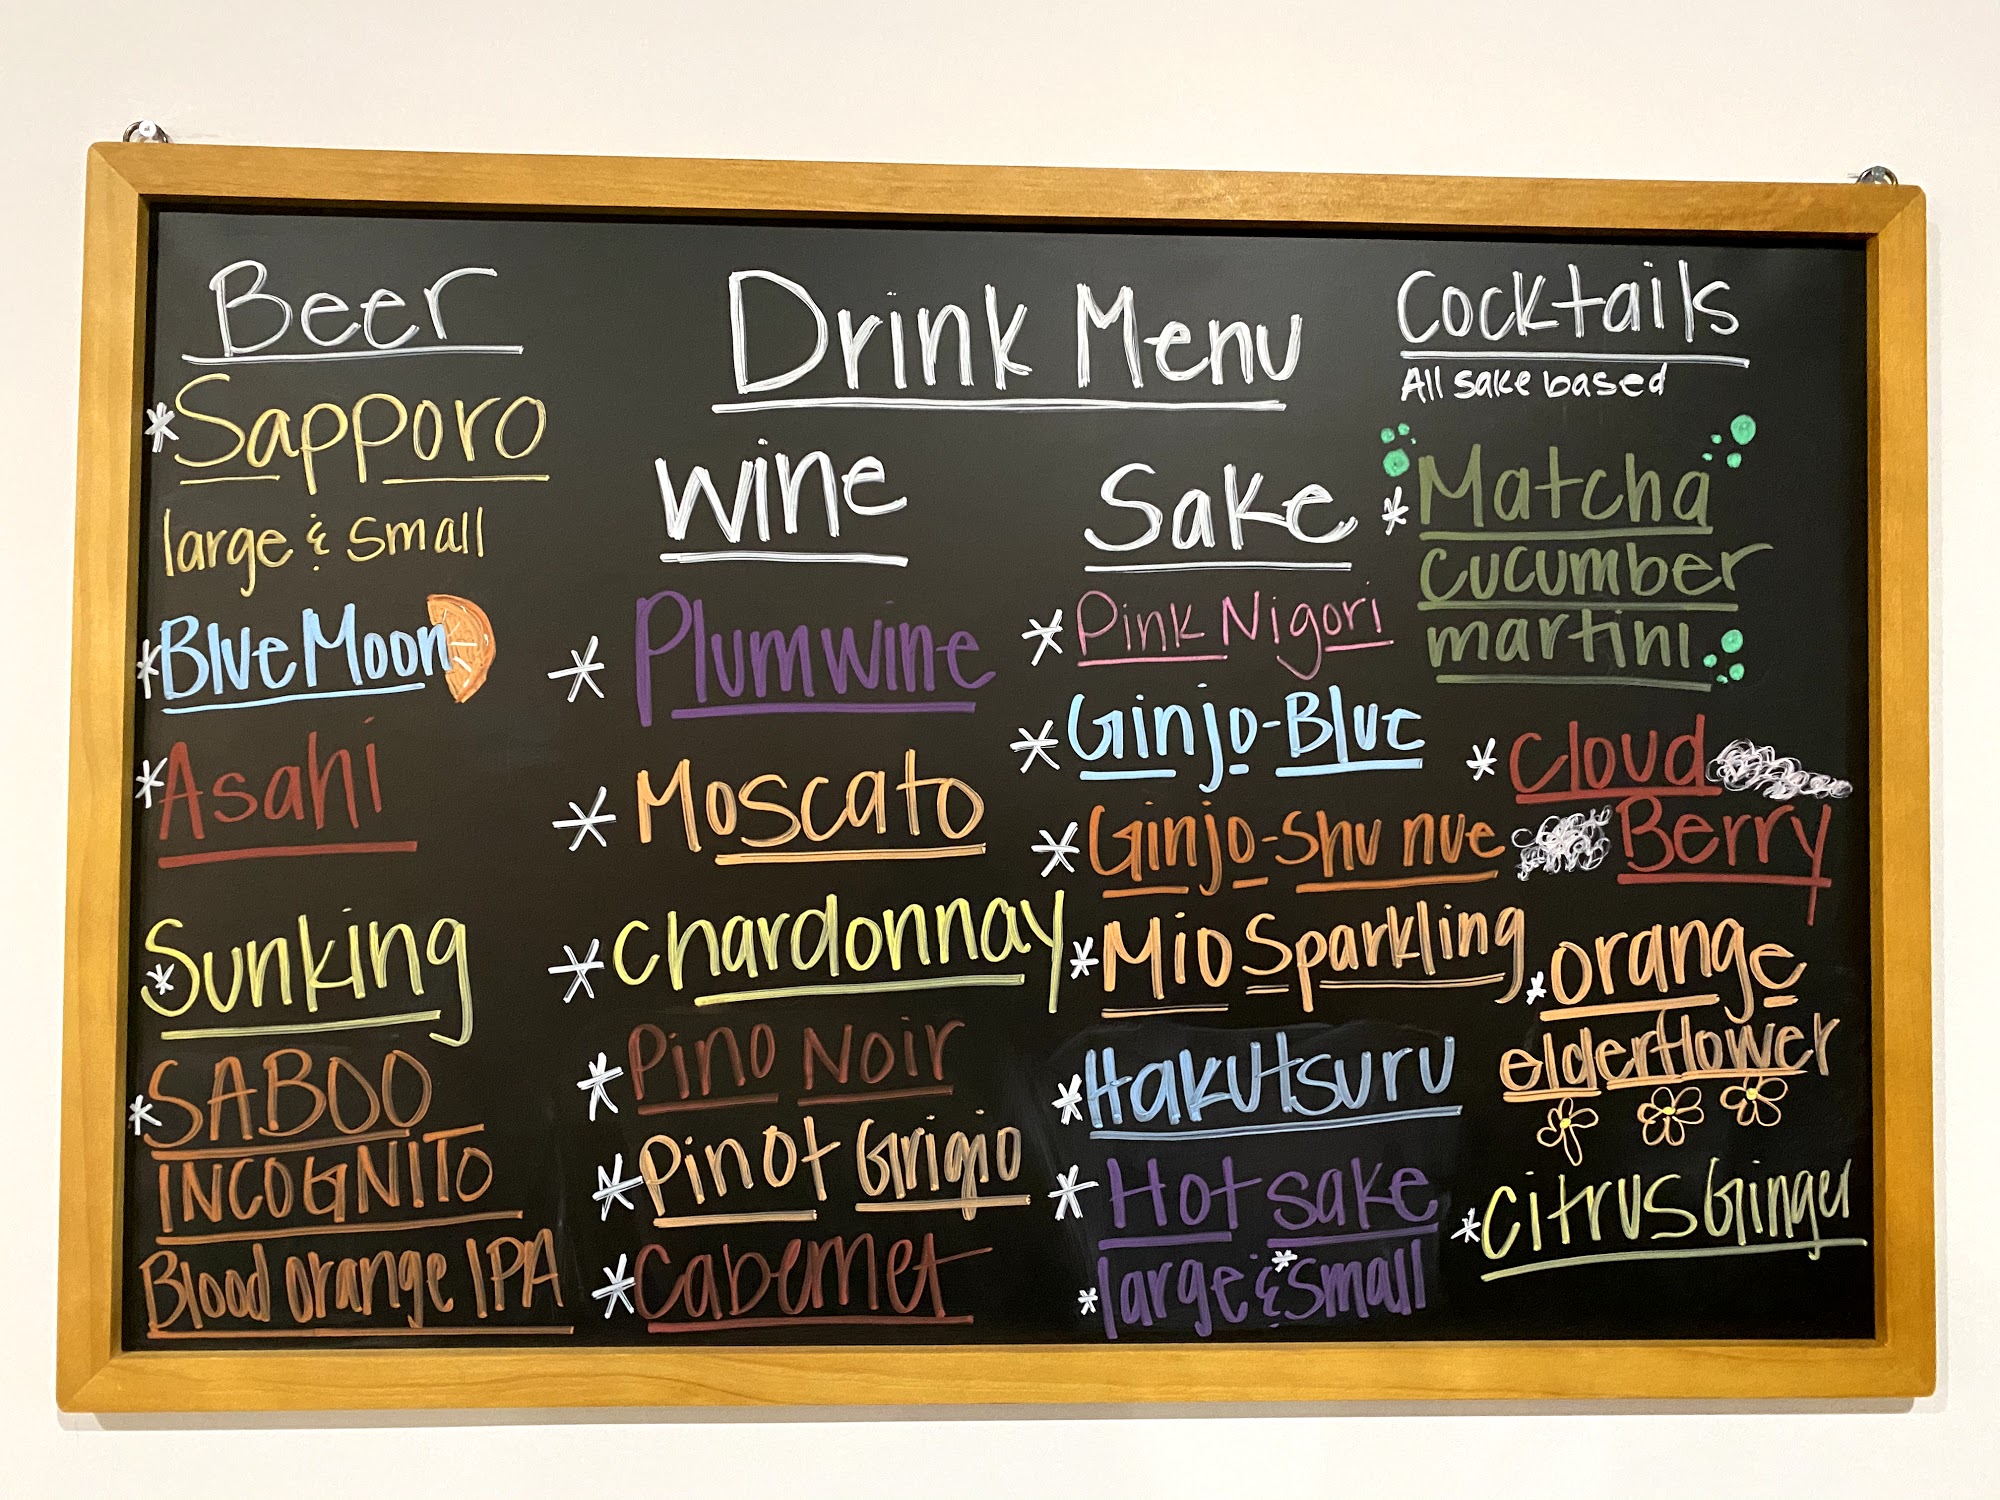 Drink Menu
Beer
*Sapporo
large & small
*Blue Moon
*Asahi
*Sunking
*SABOO
INCOGNITO
Blood orange IPA
Wine
*Plumwine
*Moscato
*Chardonnay
*Pino Noir
*Pinot Grigio
*Cabernet
Sake
*Pink Nigori
*Ginjo-Blue
*Ginjo-Shu nue
*Mio Sparkling
*Hakutsuru
*Hot sake
*large & *small
Cocktails
All sake based
*Matcha
cucumber
martini
*Cloud
Berry
*orange
elderflower
*Citrus Ginger